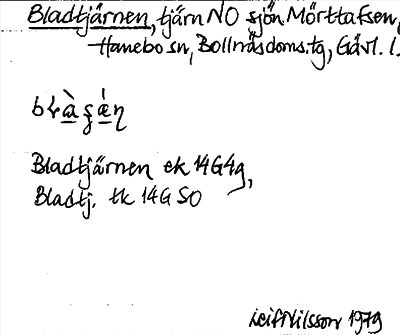 Bladtjärnen, tjärn NO sjön Mörttaksen,
Hanebo sn, Bollnäs doms.tg, Gävl. l.
Bladtjärnen ek 14G4g,
Bladtj. tk 14G SO
Leif Nilsson 1979